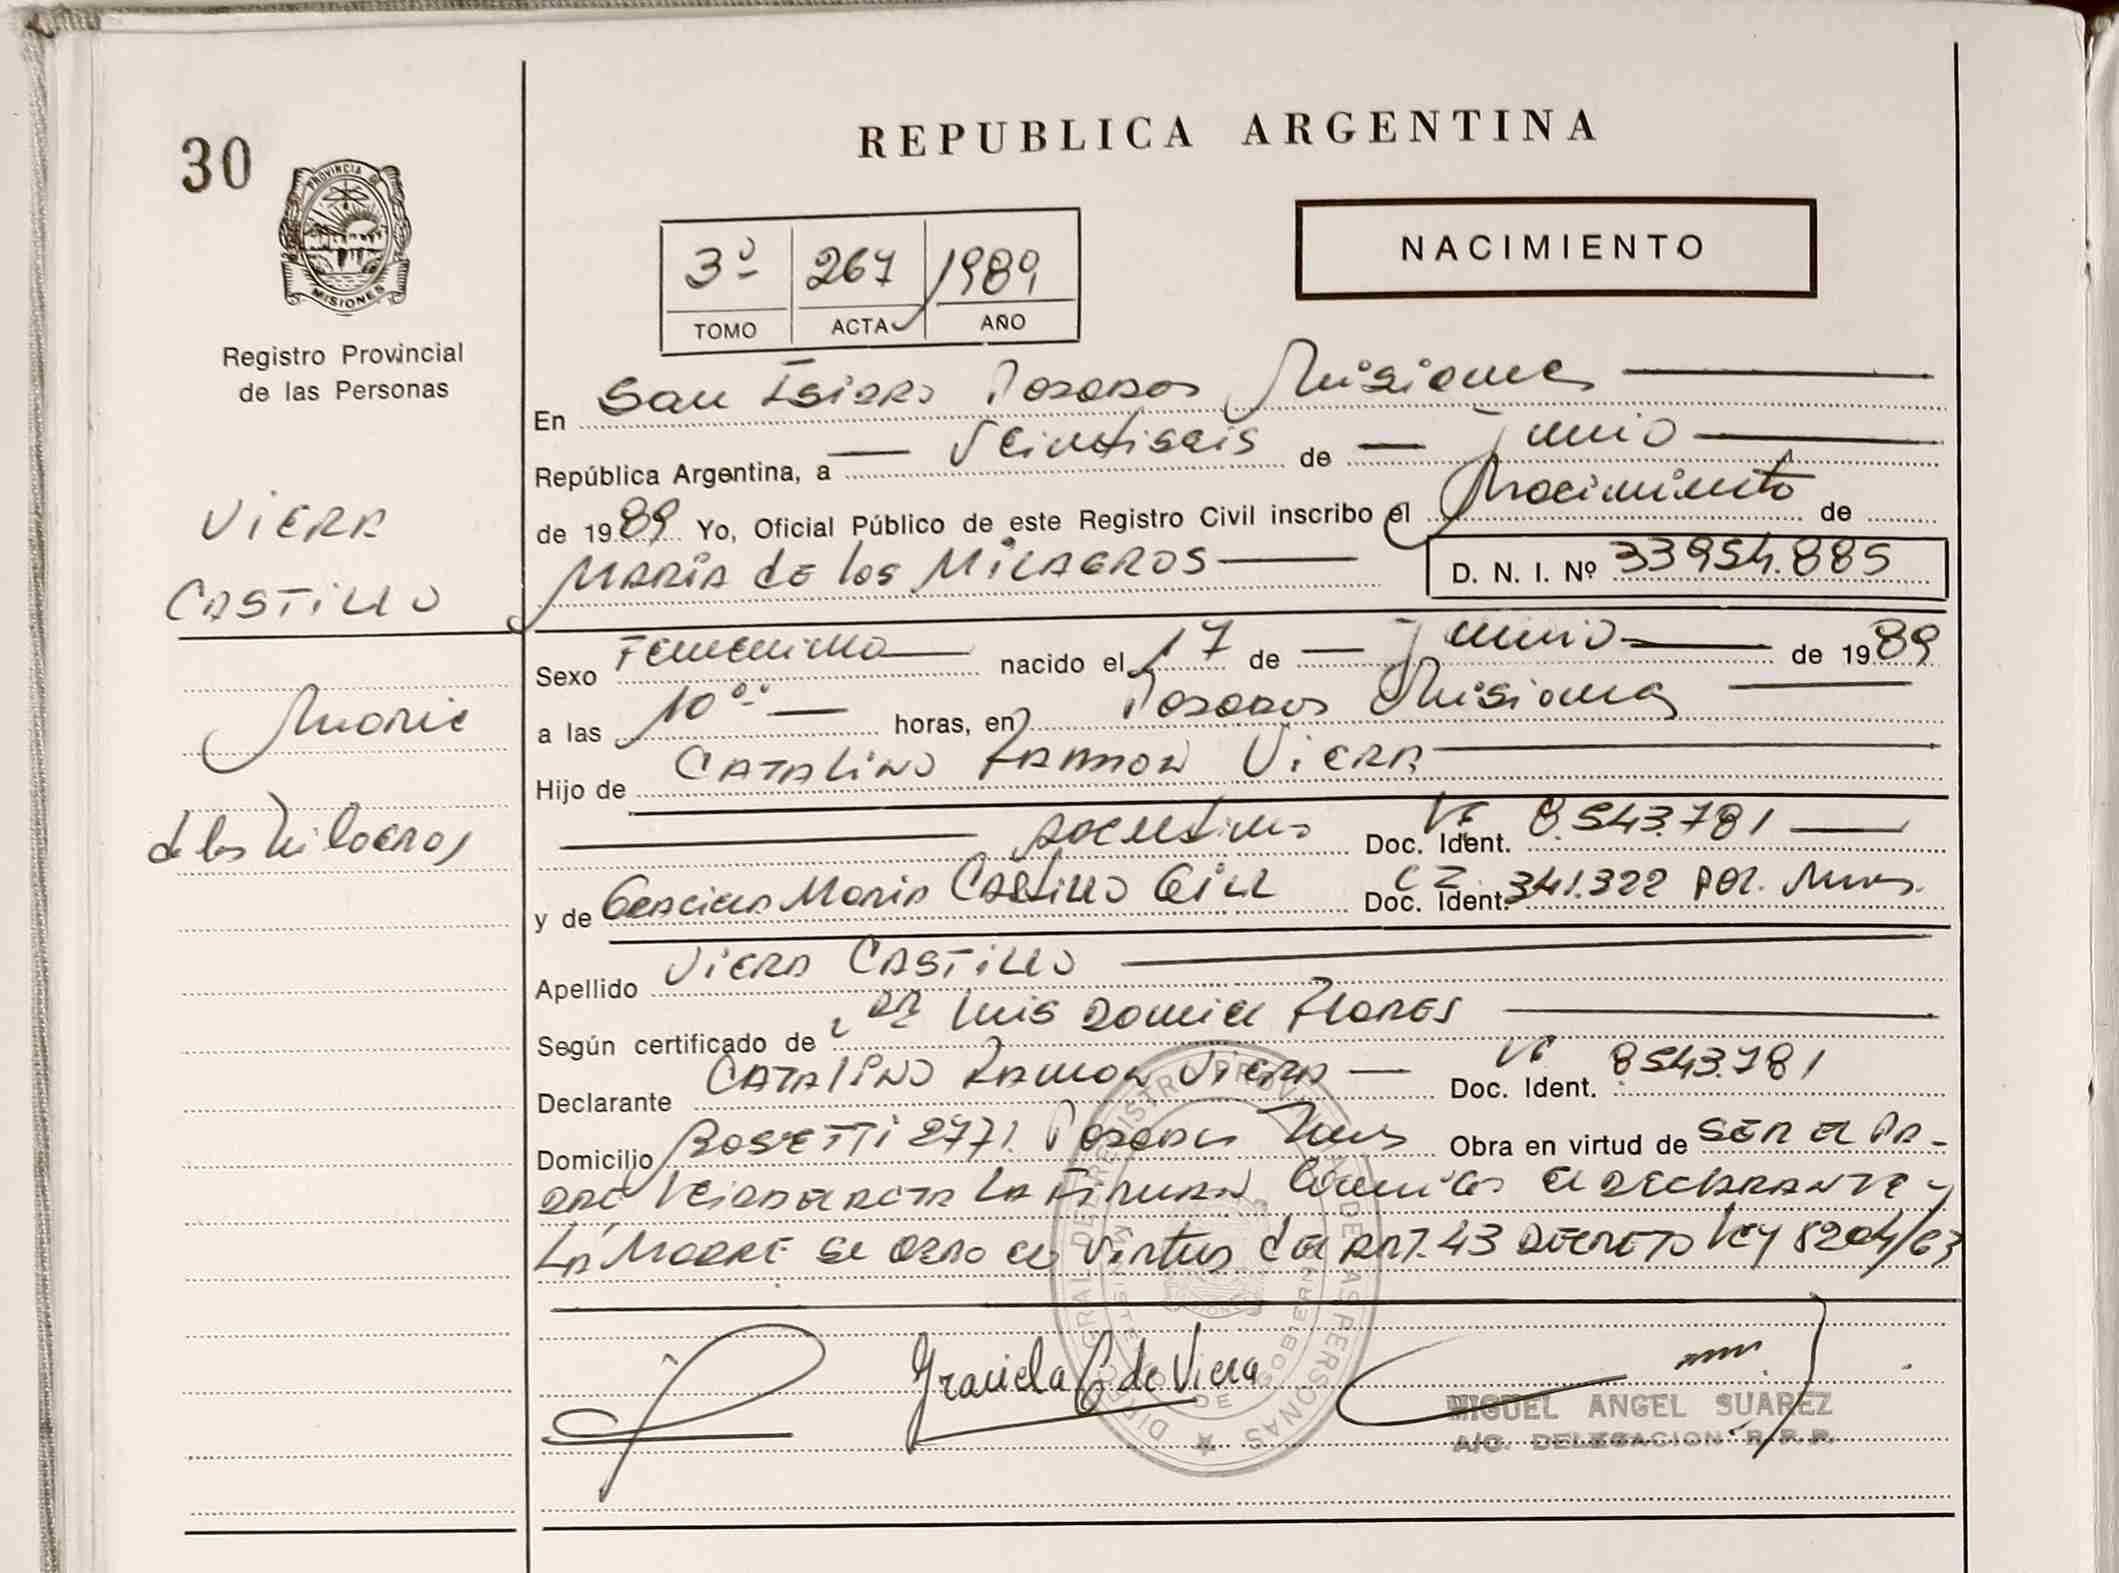 30
PROVINCIA DE
MISIONES
Registro Provincial
de las Personas
VIERA
CASTILLO
Maria
de los Milagros
REPUBLICA ARGENTINA
3º 267 1989
TOMO ACTA AÑO
NACIMIENTO
En San Isidro Posadas Misiones
República Argentina, a Veintiseis de Junio
de 1989 Yo, Oficial Público de este Registro Civil inscribo el Nacimiento de
MARIA de los MILAGROS D. N. I. Nº 33954.885
Sexo Femenino nacido el 17 de Junio de 1989
a las 10 horas, en Posadas Misiones
Hijo de CATALINO RAMON VIERA
Argentino Doc. Ident. 8.543.781
y de Maria Castillo Gill Doc. Ident. 341.322 POL. Mnes.
Apellido VIERA CASTILLO
Según certificado de DR Luis Daniel FLORES
Declarante CATALINO RAMON VIERA Doc. Ident. 8543.781
Domicilio ROSETTI 2771. Posadas Mnes Obra en virtud de SER EL PA-
DRE Leida el ACTA LA FIRMAN Conmigo El DECLARANTE y
LA MADRE se OBRO en Virtud del ART. 43 DECRETO LEY 8204/63
Graciela C de Viera
MIGUEL ANGEL SUAREZ
A/C. DELEGACION R.P.P.